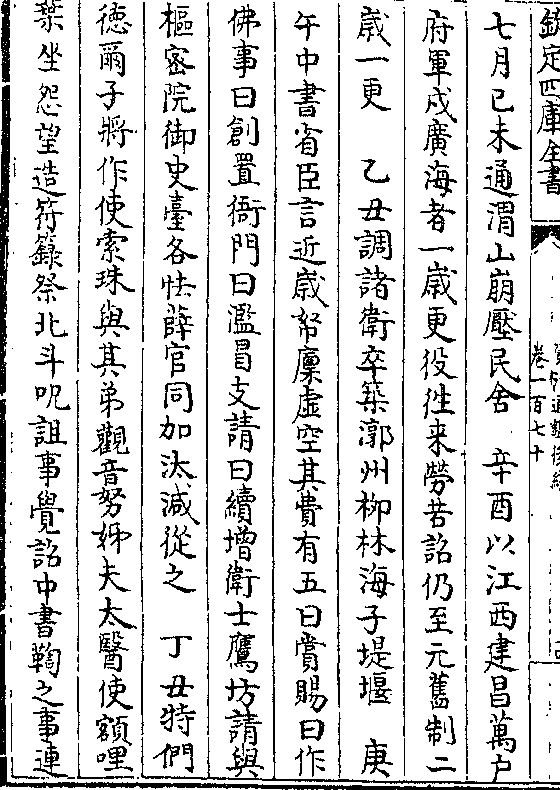 欽定四庫全書
卷一百七十
七月己未通渭山崩壓民舍　辛酉以江西建昌萬户
府軍戍廣海者一歲更役徃来勞苦詔仍至元舊制二
歲一更　乙丑調諸衛卒築漷州柳林海子堤堰　庚
午中書省臣言近歲帑廩虛空其費有五曰賞賜曰作
佛事曰創置衙門曰濫冒支請曰續增衛士鷹坊請與
樞密院御史臺各怯薛官同加汰減從之　丁丑特們
德爾子將作使索珠與其弟觀音努姊夫太醫使額哩
葉坐怨望造符籙祭北斗呪詛事覺詔中書鞫之事連